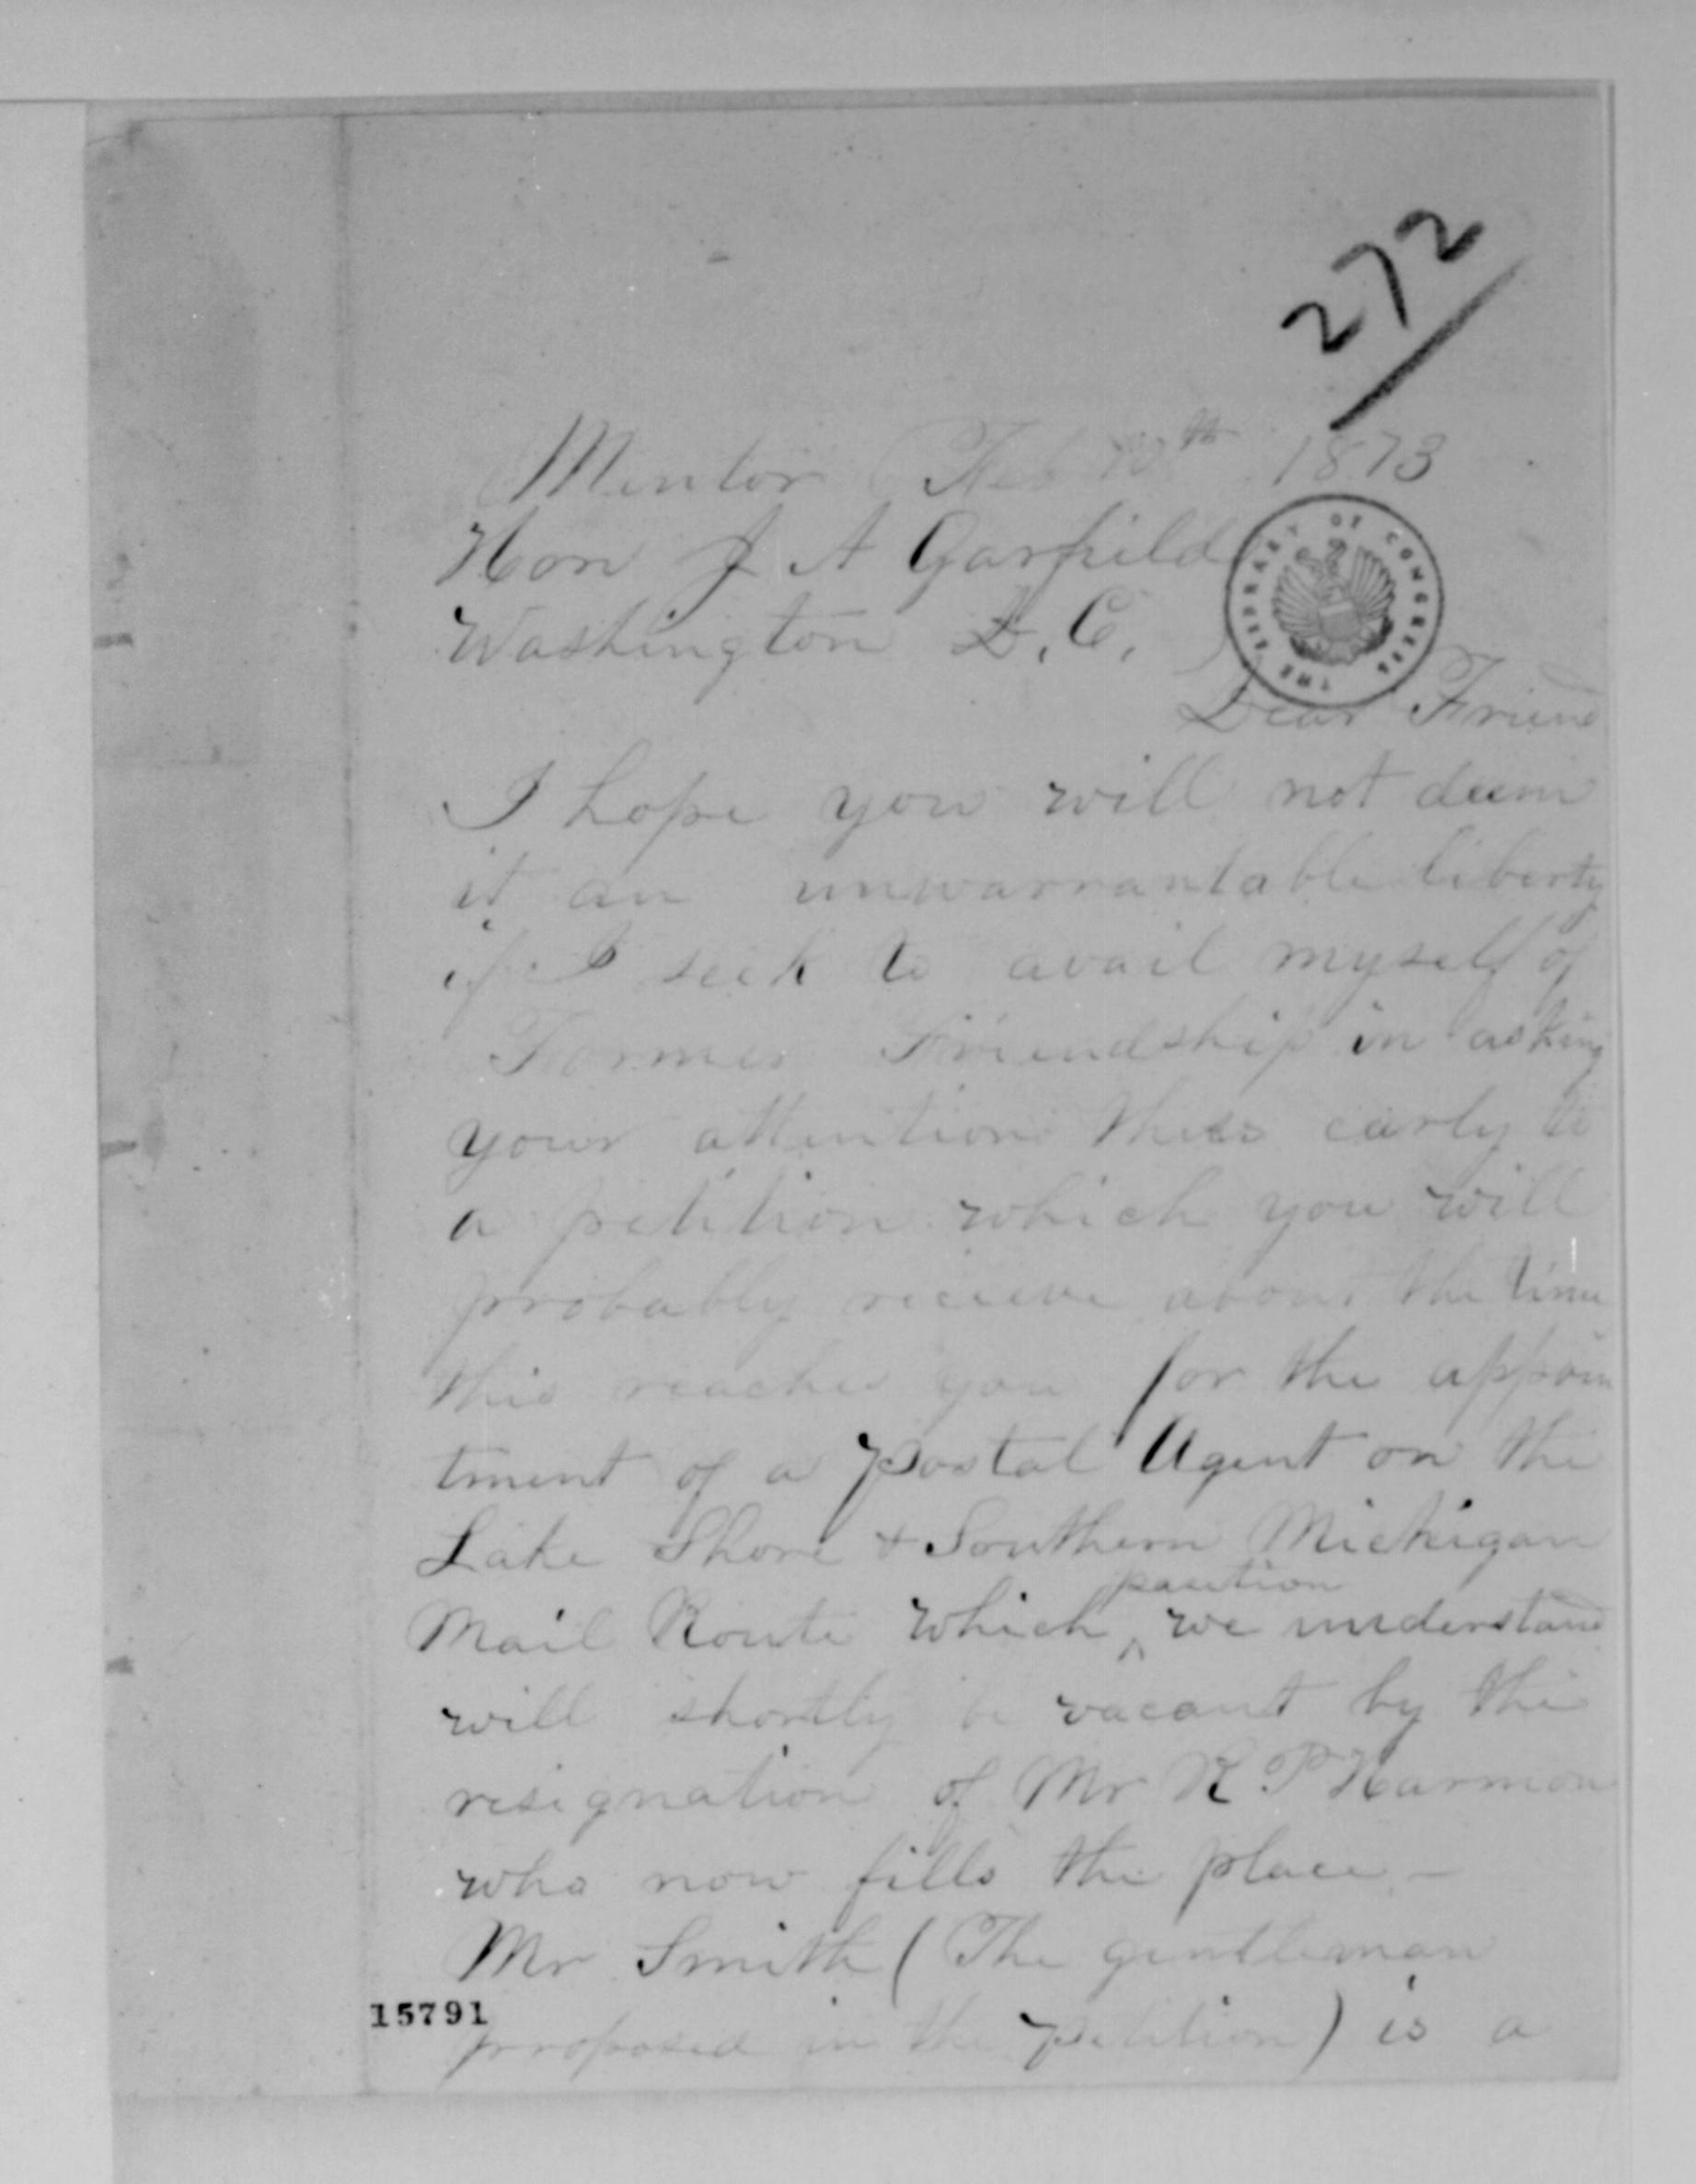 272
Mentor Feb 10th 1873
Hon J A Garfield
Washington D.C.
THE LIBRARY OF CONGRESS
Dear Friend
I hope you will not deem
it an unwarrantable liberty
if I seek to avail myself of
Former Friendship in asking
your attention thus early to
a petition which you will
probably recieve about the time
this reaches you for the appoin
tment of a Postal Agent on the
Lake Shore & Southern Michigan
position
Mail Route which ^ we understand
will shortly be vacant by the
resignation of Mr R P Harmon
who now fills the place –
Mr Smith ( The gentleman
15791
proposed in the petition ) is a